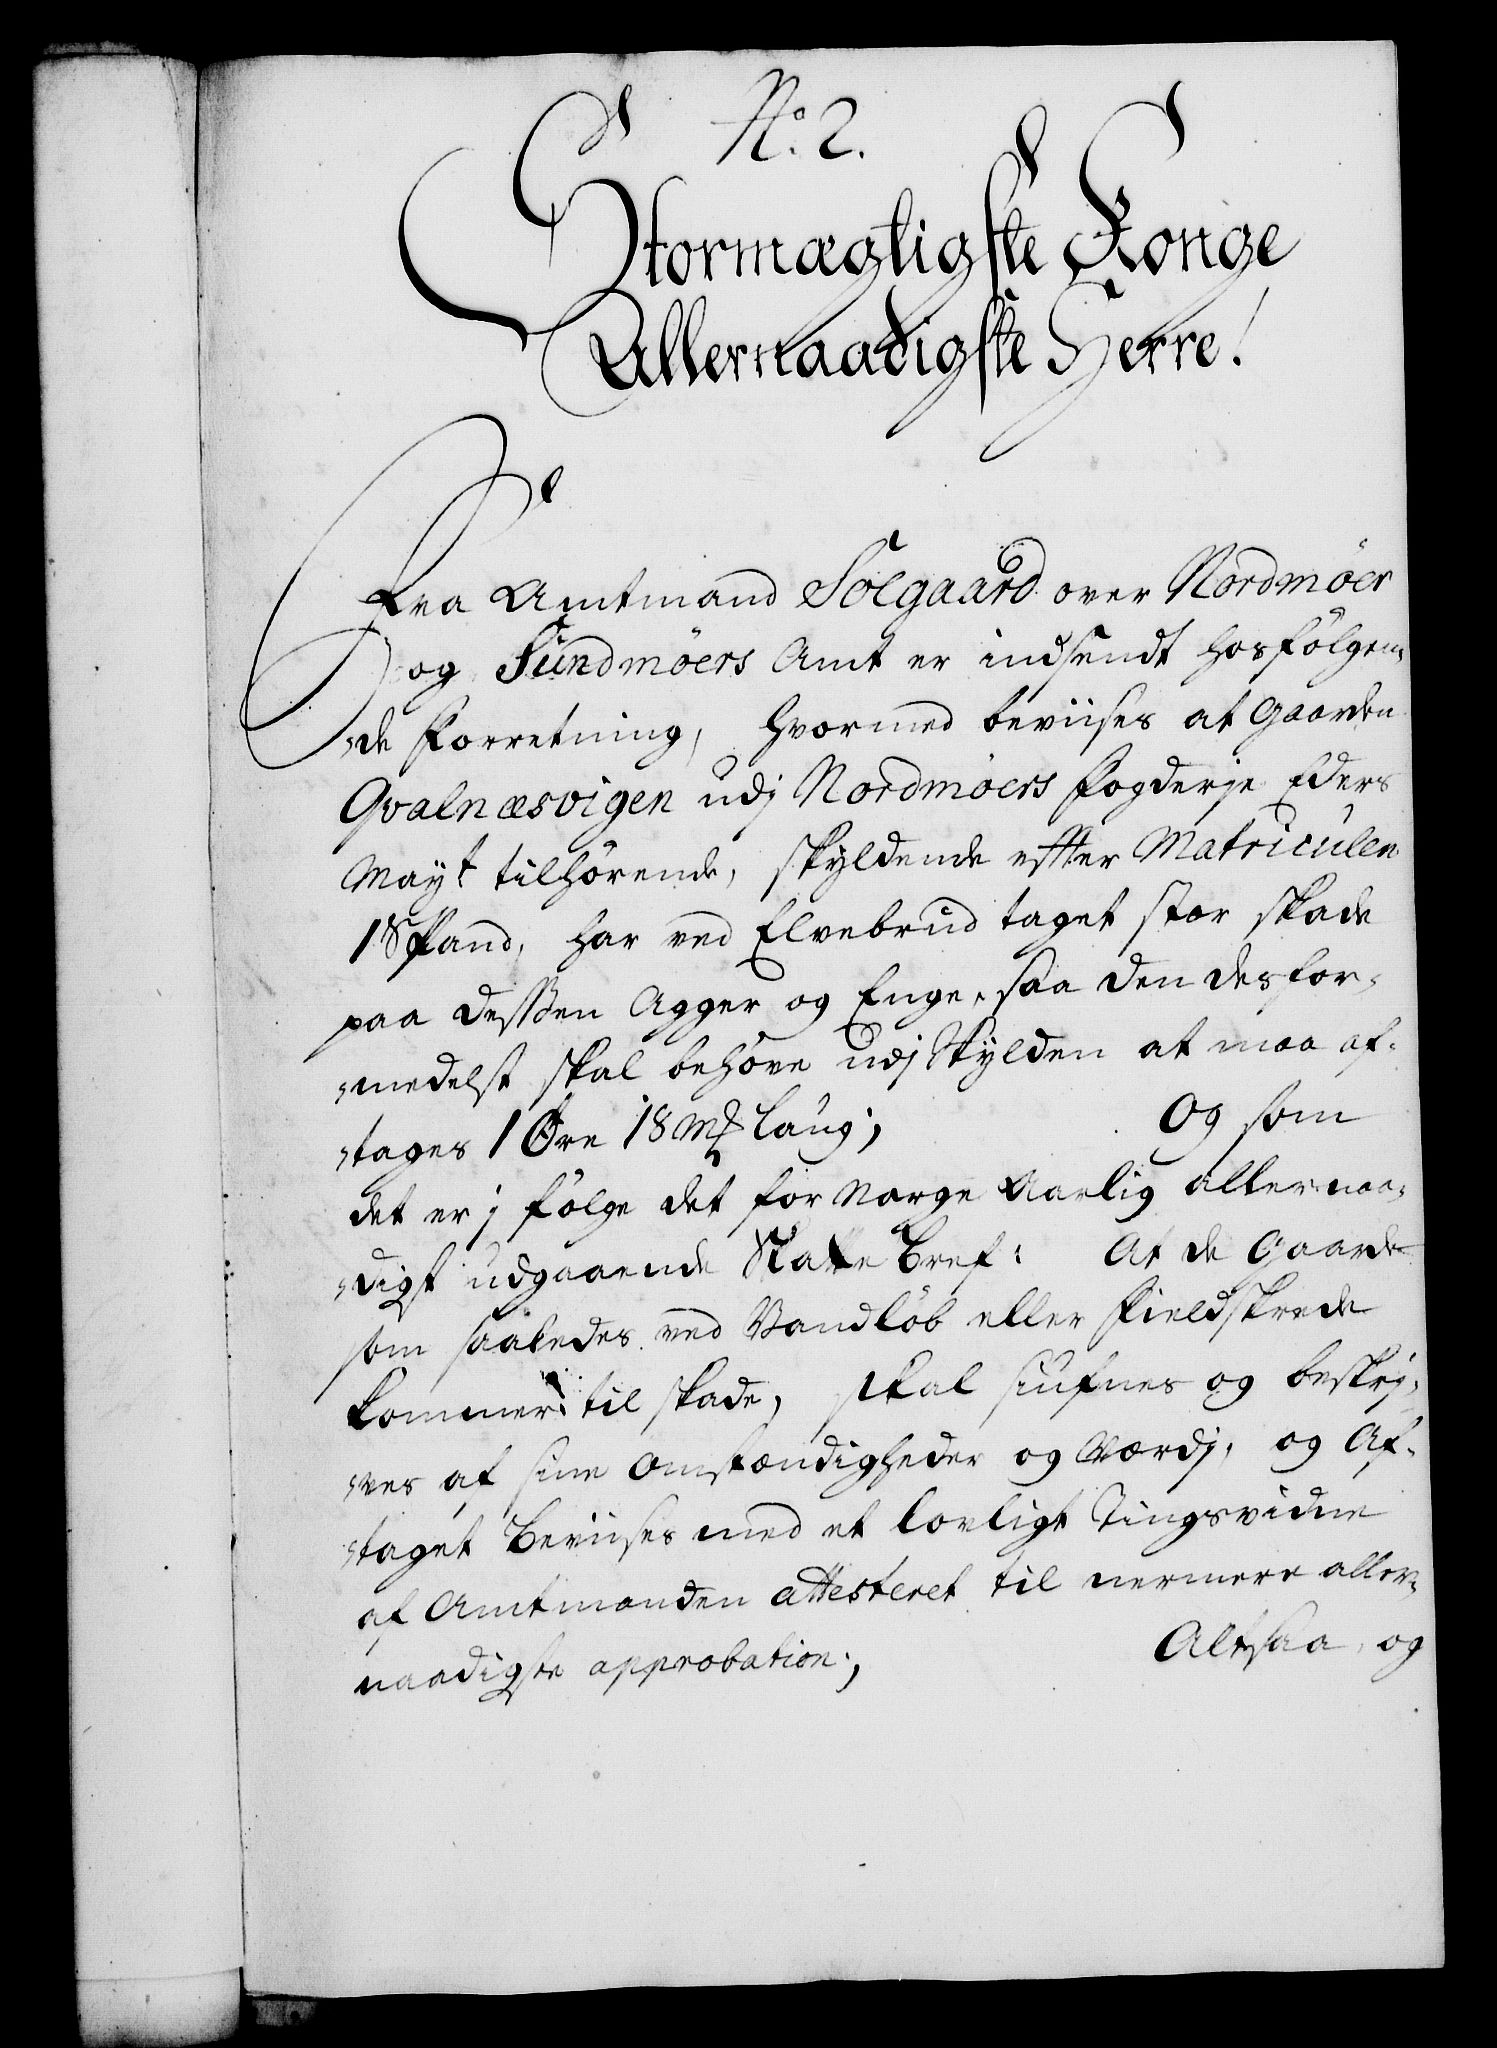 No. 2.
Stormægtigste Konge
Allernaadigste Herre!
Fra Amtmand Solgaard over Nordmöer
og Sundmöers Amt er indsendt hosfölgen-
de Forretning, hvormed beviises at Gaarden
Qvalnæsvigen udj Nordmöers Fogderje Eders
Mayt tilhörende, skyldende effter Matriculen
1 Spand, har ved Elvebrud taget stor skade
paa dessen Agger og Enge, saa den desfor-
medelst skal behöve udj Skylden at maa af-
tages 1 Øre 18 Mk laug; Og som
det er j fölge det for Norge Aarlig allernaa-
digst udgaaende Skatte Bref: At de Gaarde
som saaledes ved Vandlöb eller Fieldskrede
kommer til skade, skal siufnes og beskrj-
ves af sine Omstændigheder og Værdj, og Af-
taget Beviises med et lovligt Tingsvidne
af Amtmanden attesteret til nermere aller-
naadigste approbation; Altsaa, og